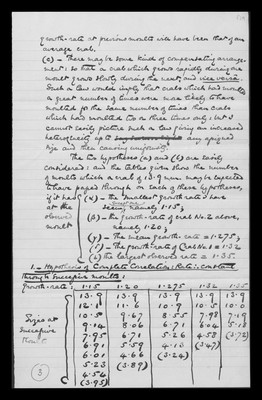 growth-rate at previous moults must have been that of an
average crab.
(c) – There may be some kind of compensating arrange-
ment: so that a crab which grows rapidly during one
moult grows slowly during the next, and vice versa.
Such a law would imply that crabs which had moulted
a great number of times were more likely to have
moulted for the same number of times than crabs
which had moulted two or three times only: but I
cannot easily picture such a law giving an increased
heterogeneity up to any assigned
age and then ceasing uniformity.
The two hypotheses (a) and (b) are easily
considered: and the tables given show the number
of moults which a crab of 13.9 mm. may be expected
to have passed through on each of these hypotheses,
if it had at the observed moult
(α) – The smallest growth-rate
namely 1.15;
(β) – The growth-rate of crab No. 2 above,
namely 1.20;
(γ) – The mean growth-rate = 1.275;
The growth-rate of Crab No 1 = 1.32
The largest observed rate = 1.35.
1. – Hypothesis of Complete Correlation: Rate constant
through Successive moults.
Growth-rate: 1.15 1.20 1.275 1.32 1.35
Sizes at successive moults.
13.9 13.9 13.9 13.9 13.9
12.1 11.6 10.9 10.5
10.5 9.67 8.55 7.98
9.14 8.06 6.71 6.04
7.95 6.71 5.26 4.58
6.91 5.59 4.13 (3.47)
6.01 4.66 (3.24)
5.23 (3.89)
4.54
(3.95)
3